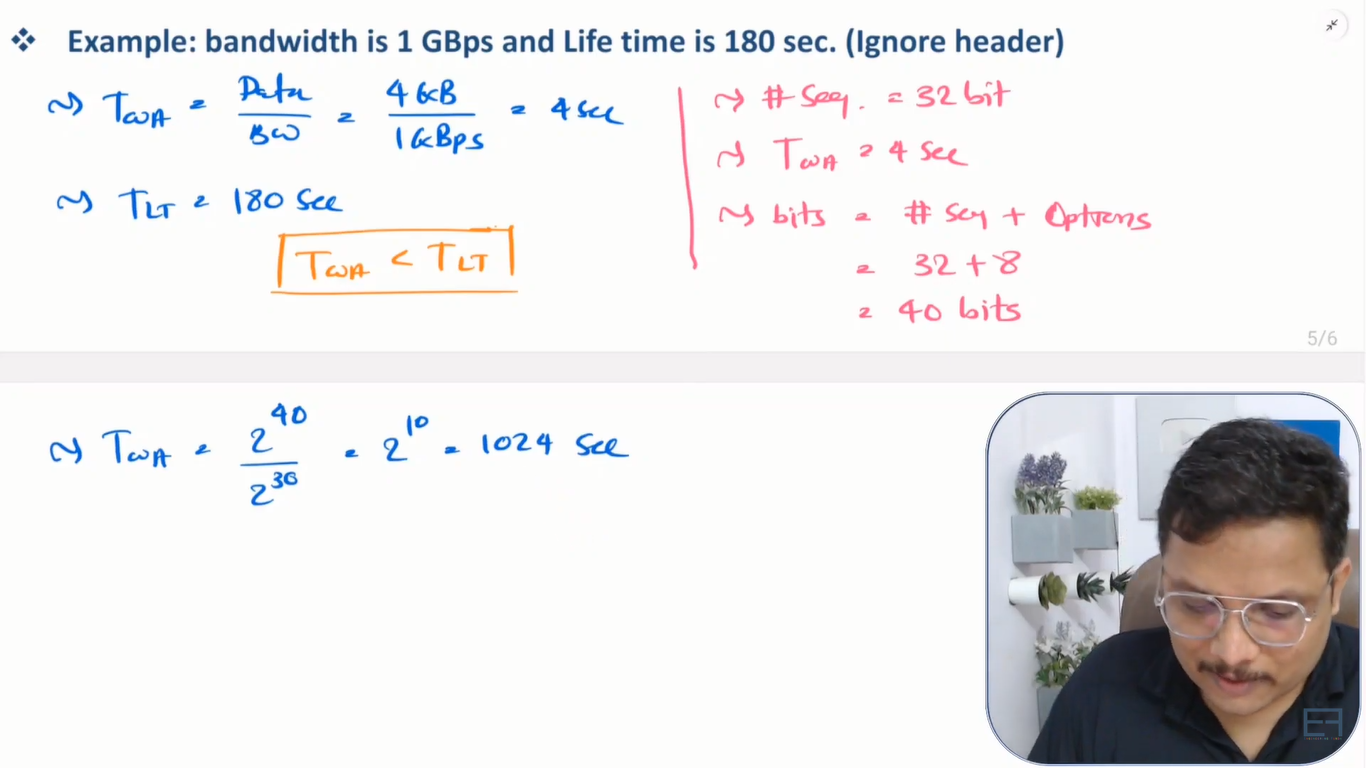 ❖ Example: bandwidth is 1 GBps and Life time is 180 sec. (Ignore header)
~> TWA = Data / BW = 4 GB / 1 GBps = 4 sec
~> TLT = 180 sec
TWA < TLT
~> # Seq. = 32 bit
~> TWA = 4 sec
~> bits = # Seq + Options
= 32 + 8
= 40 bits
5/6
~> TWA = 2^40 / 2^30 = 2^10 = 1024 sec